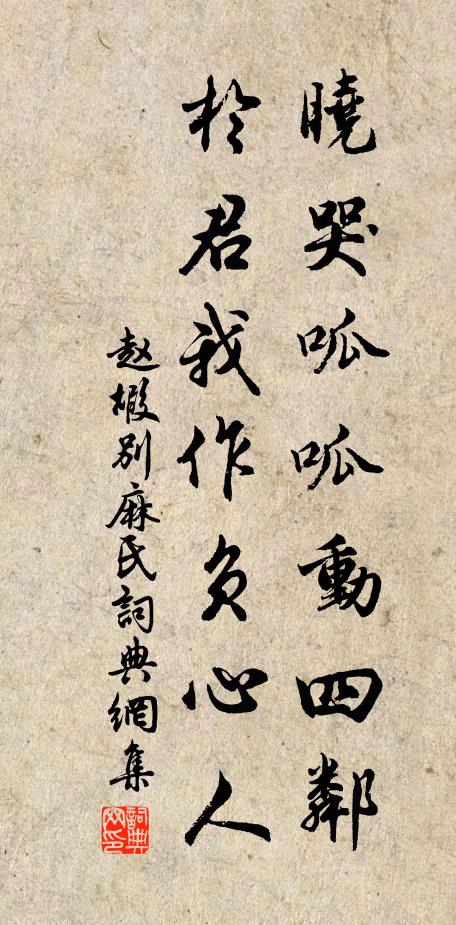 曉哭呱呱動四鄰
於君我作負心人
赵嘏别麻氏詞典網集
詞典网印